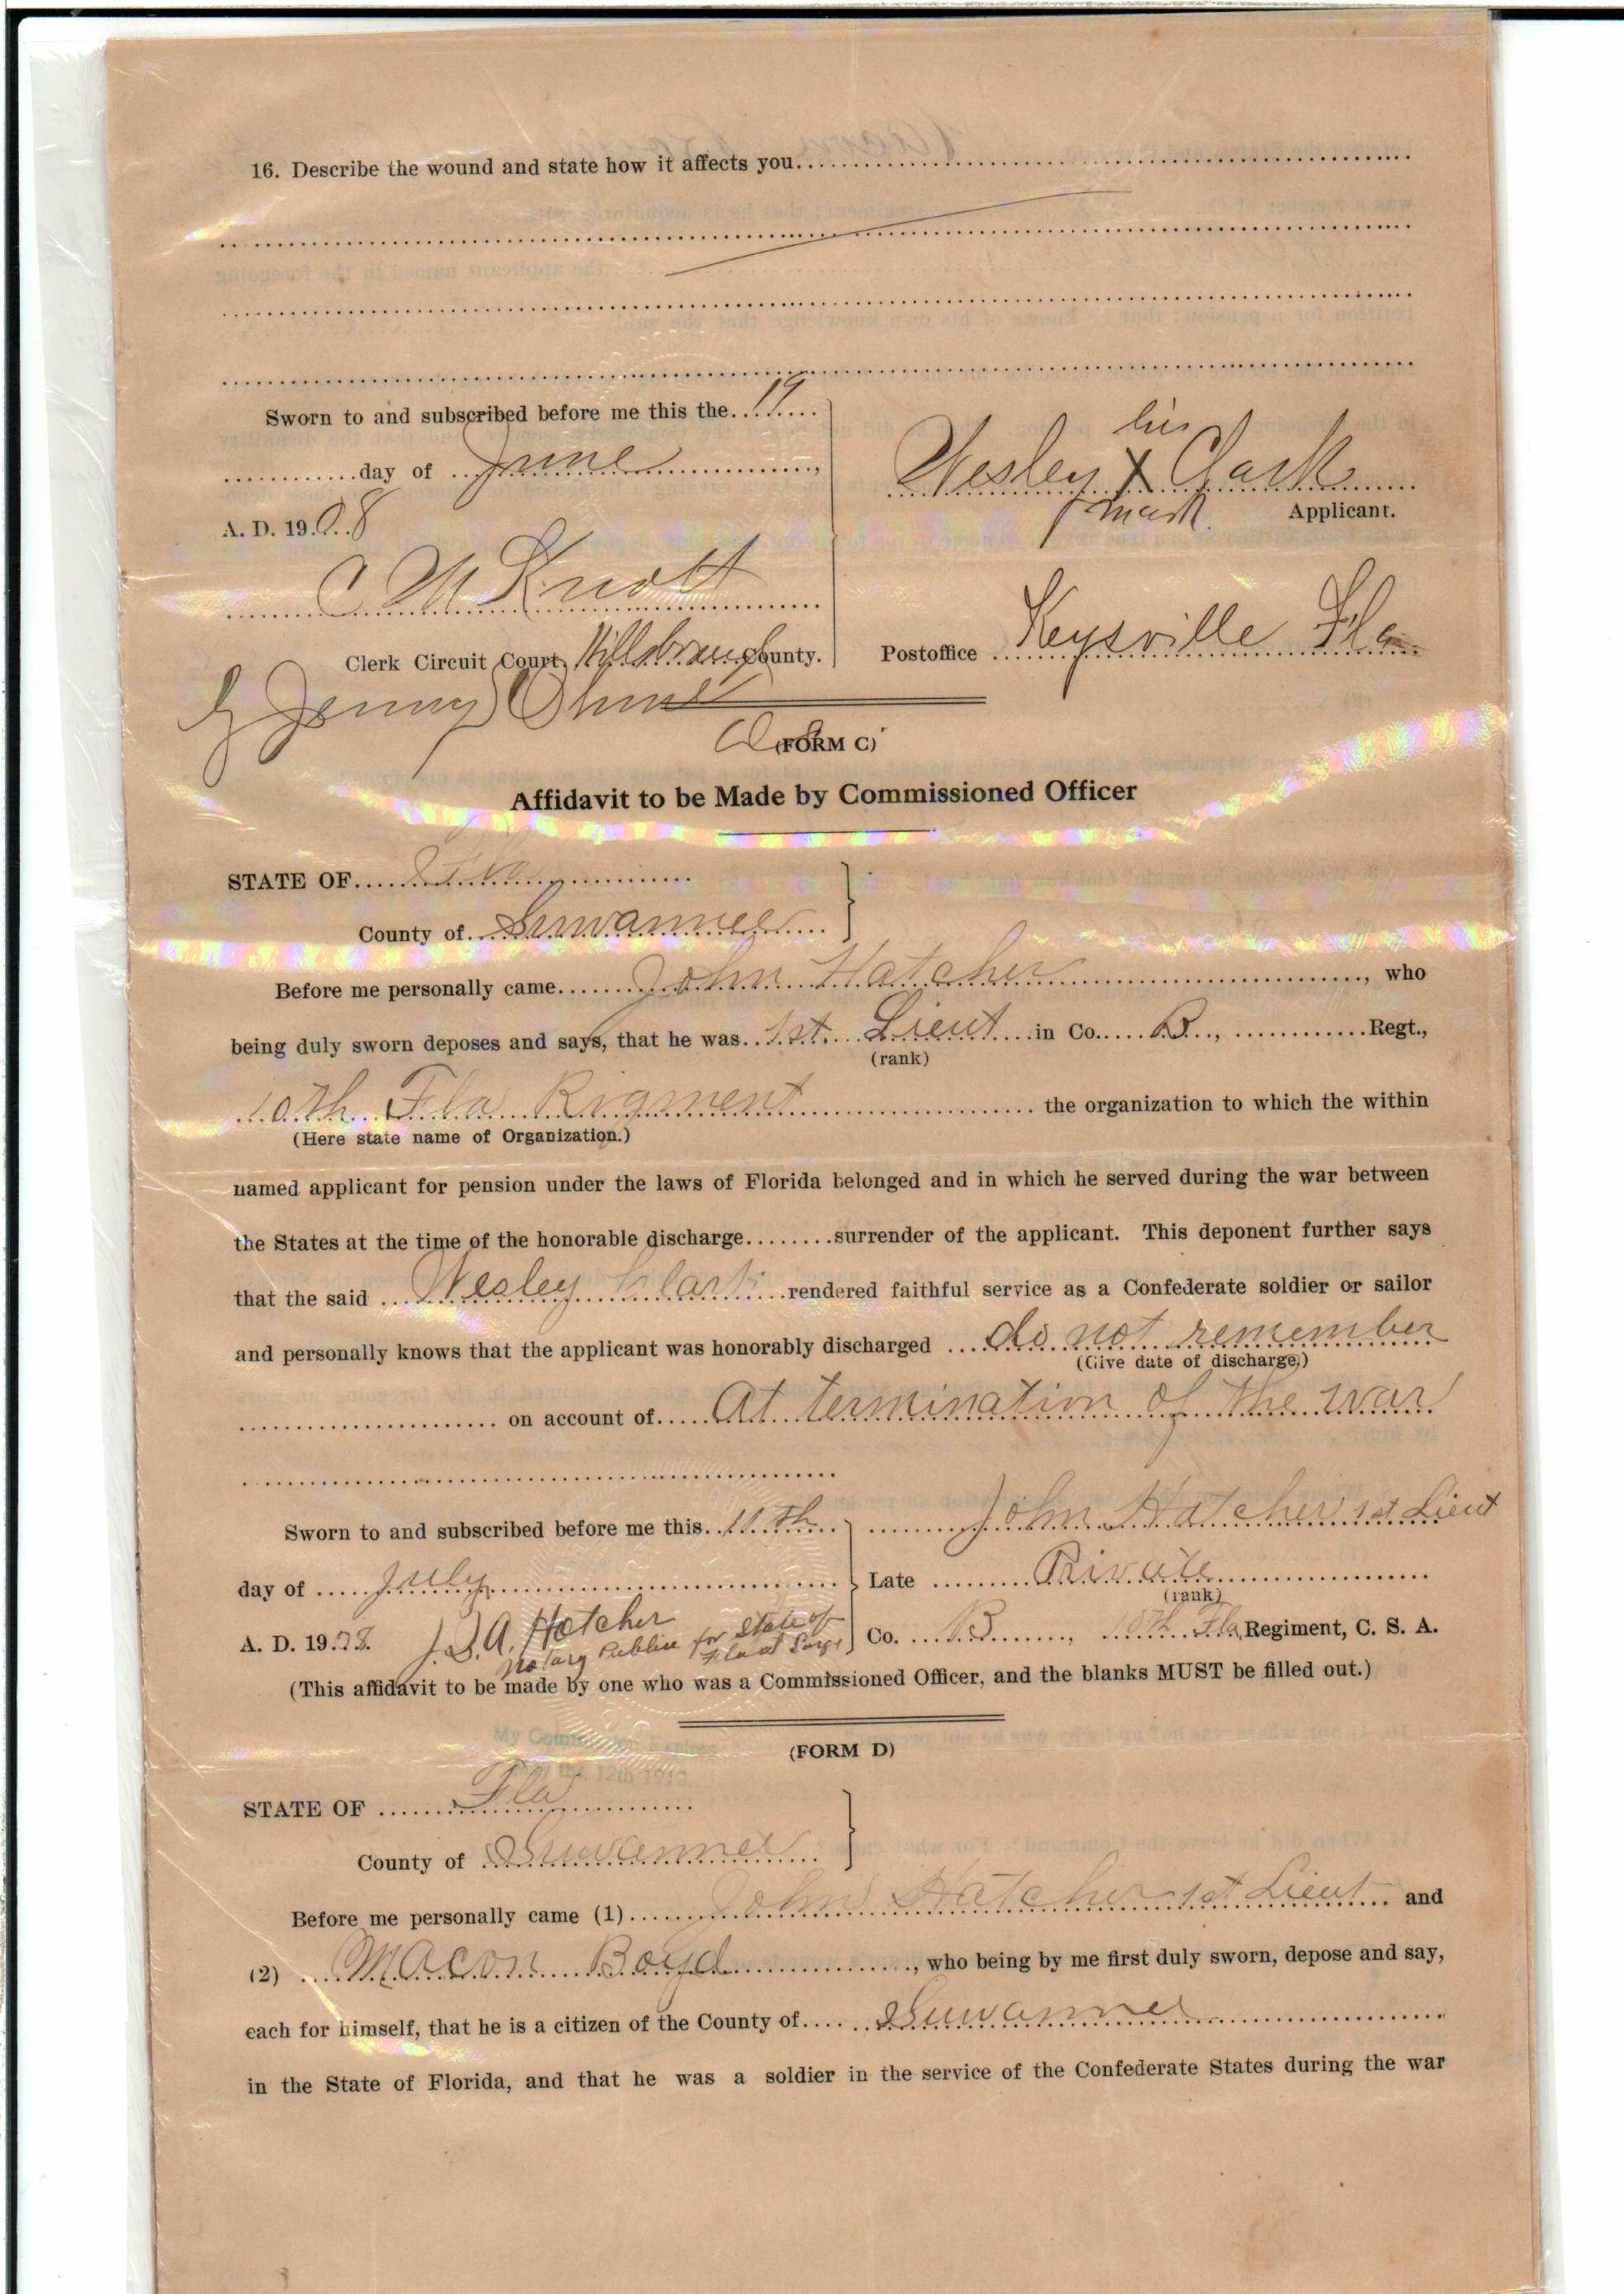 16. Describe the wound and state how it affects you
Sworn to and subscribed before me this the 19
day of June
A. D. 1908
his
Wesley X Clark
mark
Applicant.
C M Knott
Clerk Circuit Court, Hillsborough County.
Postoffice Keysville Fla
(FORM C)
Affidavit to be Made by Commissioned Officer
STATE OF Fla
County of Suwannee
Before me personally came John Hatcher, who
being duly sworn deposes and says, that he was 1st Lieut in Co. B, Regt.,
(rank)
10th Fla Rigment the organization to which the within
(Here state name of Organization.)
named applicant for pension under the laws of Florida belonged and in which he served during the war between
the States at the time of the honorable discharge surrender of the applicant. This deponent further says
that the said Wesley Clark rendered faithful service as a Confederate soldier or sailor
and personally knows that the applicant was honorably discharged do not remember
(Give date of discharge.)
on account of At termination of the war
Sworn to and subscribed before me this 11th
day of July
A. D. 1908.
J. A. Hatcher
Notary Public for State of
Fla at Large
John Hatcher 1st Lieut
Late Private
(rank)
Co. B, 10th Fla Regiment, C. S. A.
(This affidavit to be made by one who was a Commissioned Officer, and the blanks MUST be filled out.)
(FORM D)
STATE OF Fla
County of Suwannee
Before me personally came (1) John Hatcher 1st Lieut and
(2) Macon Boyd, who being by me first duly sworn, depose and say,
each for himself, that he is a citizen of the County of Suwannee
in the State of Florida, and that he was a soldier in the service of the Confederate States during the war